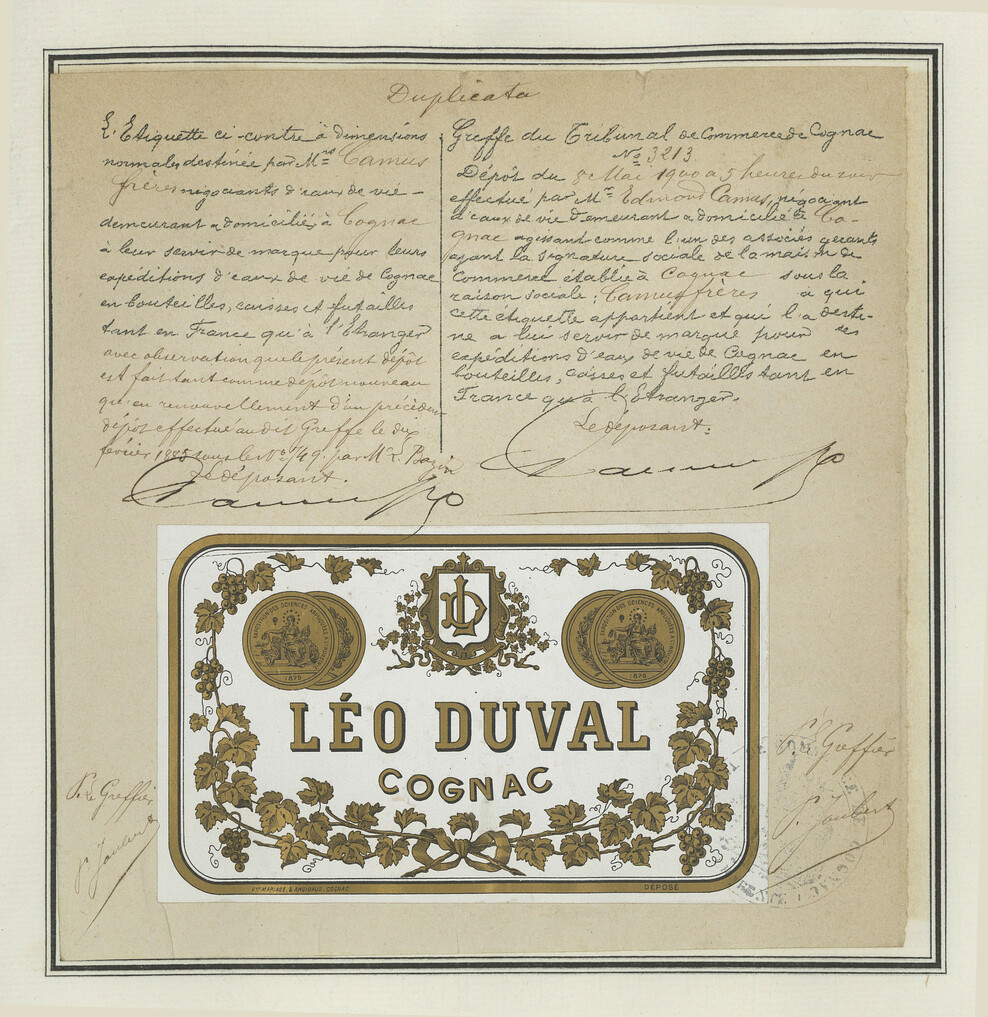 Duplicata
L'Etiquette ci-contre à dimensions
normales destinée par Mrs Camus
frères négociants d'eaux de vie -
demeurant & domiciliés à Cognac
à leur servir de marque pour leurs
expéditions d'eaux de vie de Cognac
en bouteilles, caisses et futailles
tant en France qu'à l'Etranger
avec observation que le présent dépôt
est fait tant comme dépôt nouveau
qu'en renouvellement d'un précédent
dépôt effectué au dit Greffe le dix
février sous le No par Mr L. Bazin
Le déposant.
Greffe du Tribunal de Commerce de Cognac
No 3213.
Dépôt du 8 Mai 1900 à 5 heures du soir
effectué par Mr Edmond Camus, négociant
d'eaux de vie demeurant & domicilié à Co-
gnac agissant comme l'un des associés gérants
ayant la signature sociale de la maison de
Commerce établie à Cognac sous la
raison sociale: Camus frères à qui
cette étiquette appartient et qui l'a desti-
né à lui servir de marque pour ses
expéditions d'eaux de vie de Cognac en
bouteilles, caisses et futailles tant en
France qu'à l'Etranger.
Le déposant:
LD
1878
1878
LÉO DUVAL
COGNAC
P. Le Greffier
P. Joubert
P. Le Greffier
P. Joubert
Vve MARIAGE, & ANDIBAUD, COGNAC
DÉPOSÉ